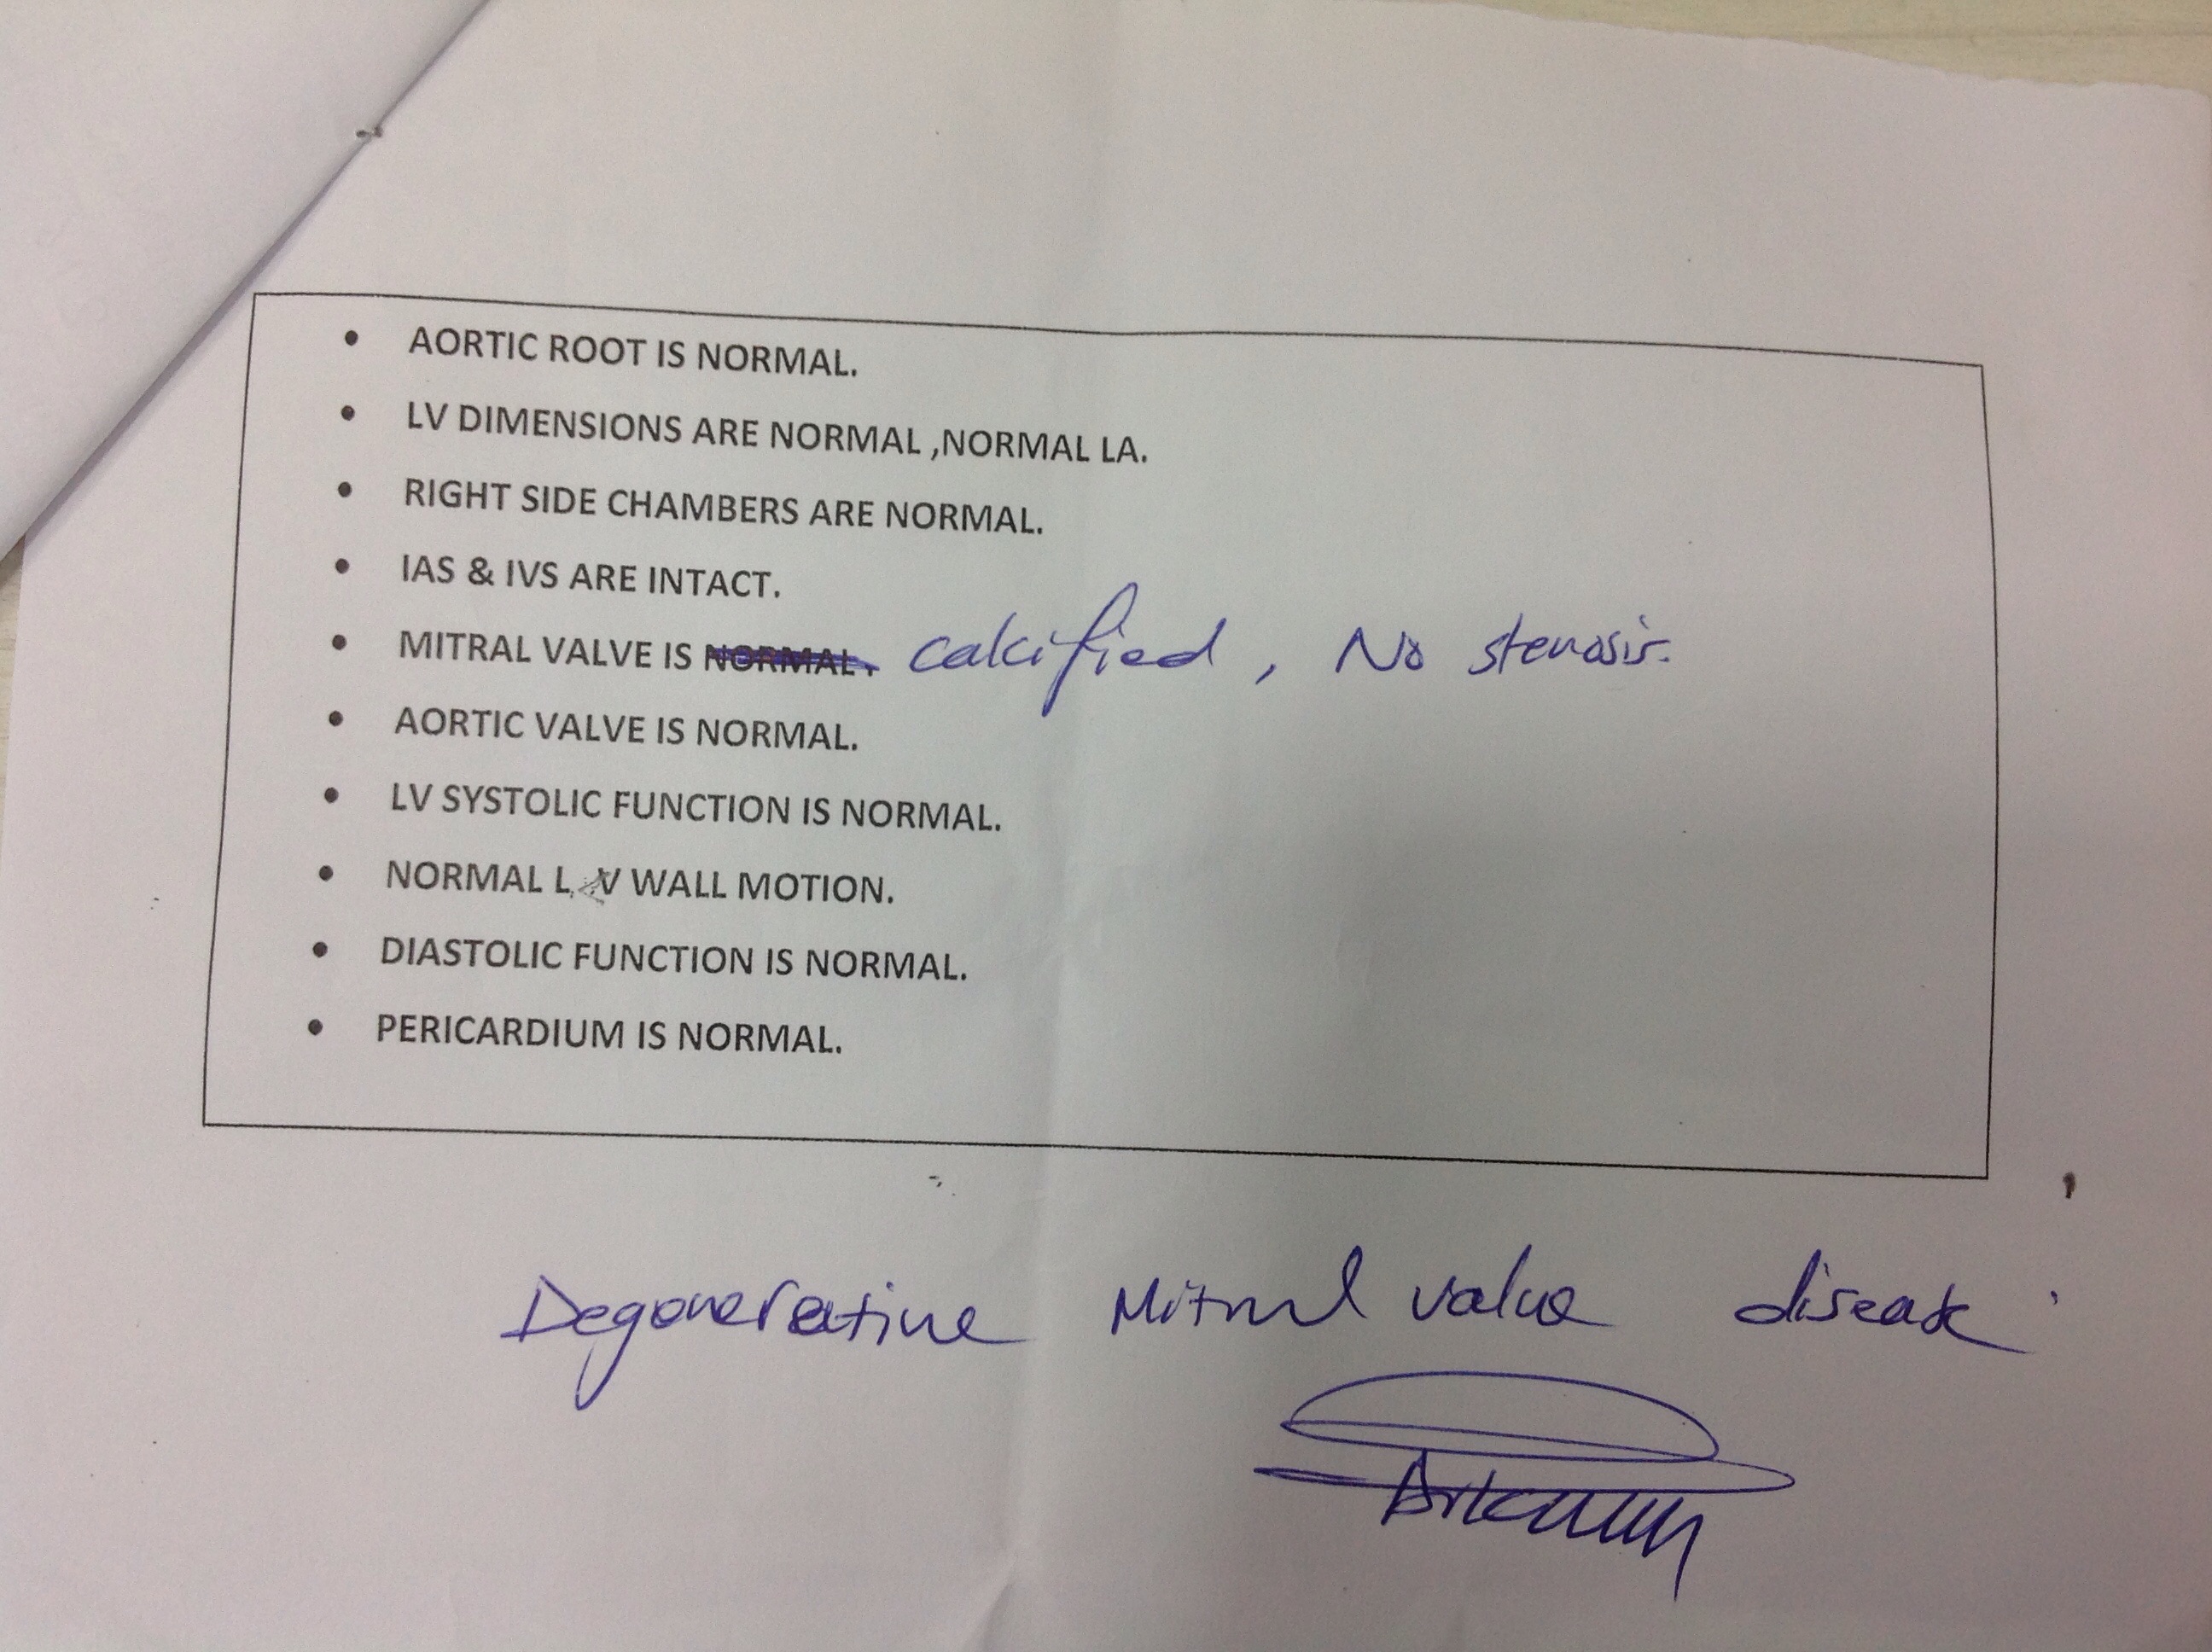 • AORTIC ROOT IS NORMAL.
• LV DIMENSIONS ARE NORMAL ,NORMAL LA.
• RIGHT SIDE CHAMBERS ARE NORMAL.
• IAS & IVS ARE INTACT.
• MITRAL VALVE IS NORMAL. calcified , No stenosis.
• AORTIC VALVE IS NORMAL.
• LV SYSTOLIC FUNCTION IS NORMAL.
• NORMAL L V WALL MOTION.
• DIASTOLIC FUNCTION IS NORMAL.
• PERICARDIUM IS NORMAL.
Degenerative Mitral valve disease